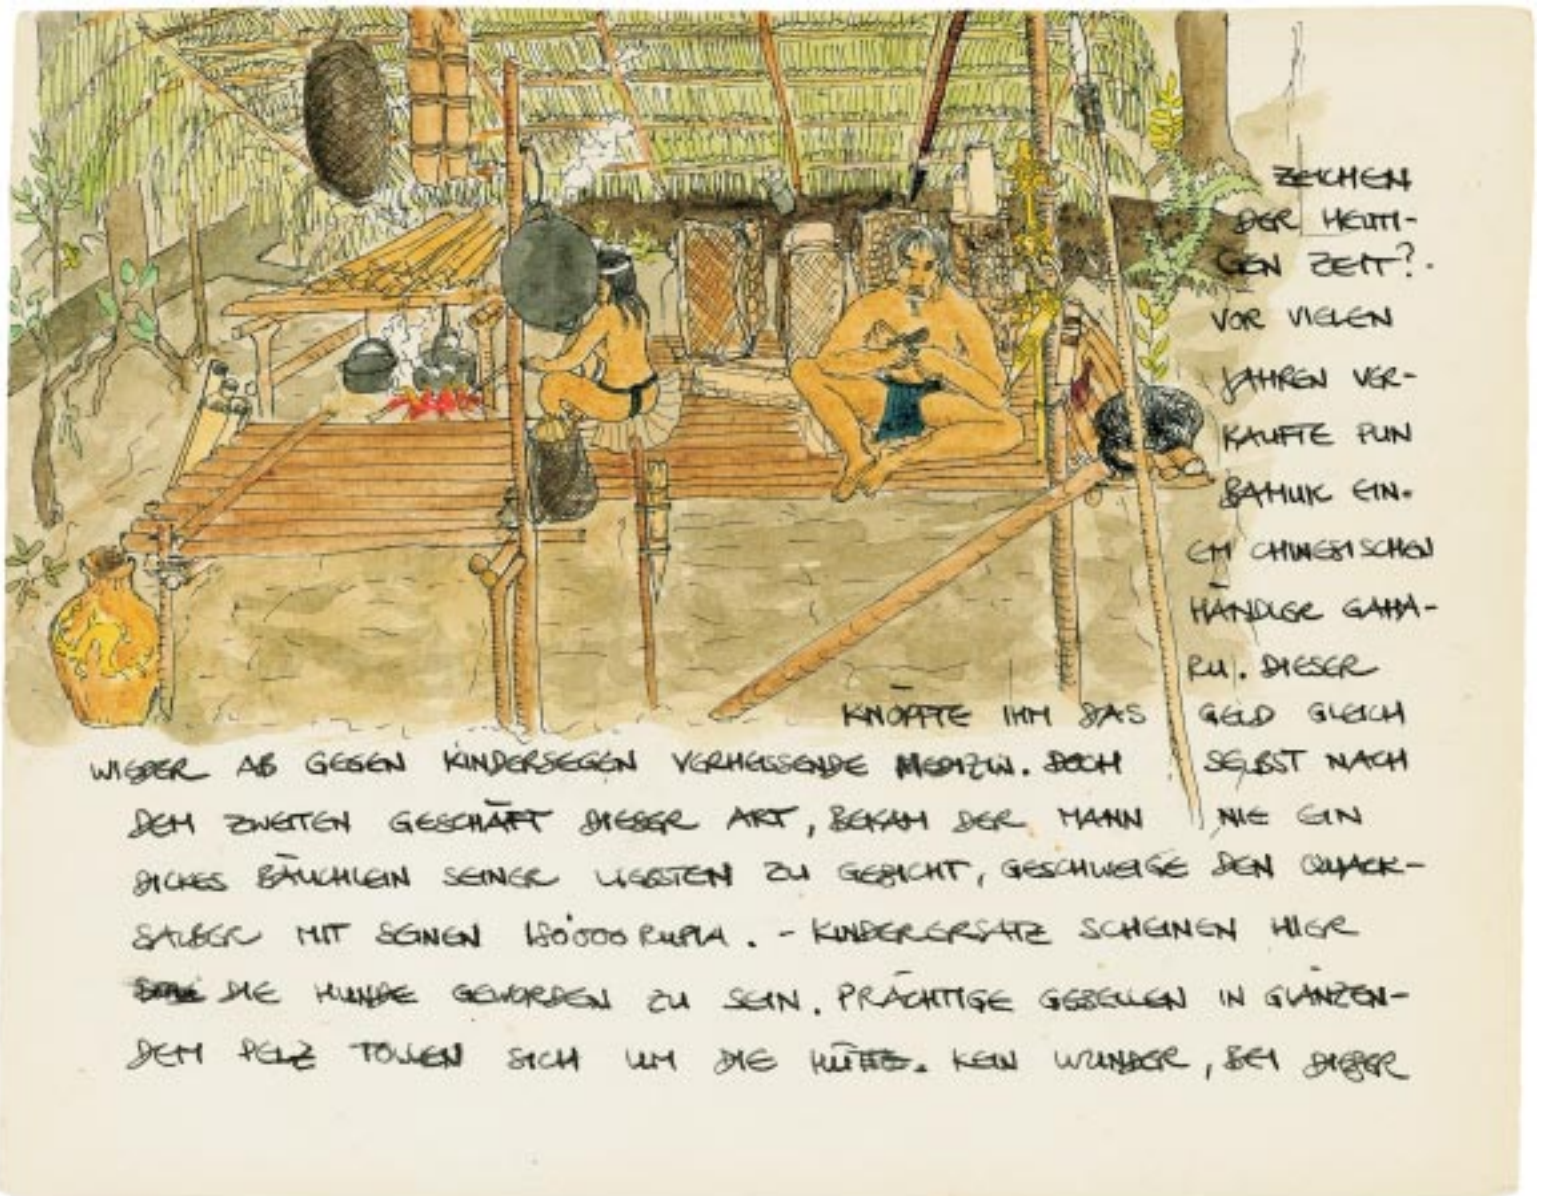 ZEICHEN
DER HEUTI-
GEN ZEIT?.
VOR VIELEN
JAHREN VER-
KAUFTE PUN
BAHUK EIN-
EM CHINESISCHEN
HÄNDLER GAHA-
RU. DIESER
KNÖPFTE IHM DAS GELD GLEICH
WIEDER AB GEGEN KINDERSEGEN VERHEISSENDE MEDIZIN. DOCH SELBST NACH
DEM ZWEITEN GESCHÄFT DIESER ART, BEKAM DER MANN NIE EIN
DICKES BÄUCHLEIN SEINER LIEBSTEN ZU GESICHT, GESCHWEIGE DEN QUACK-
SALBER MIT SEINEN 180'000 RUPIA. - KINDERERSATZ SCHEINEN HIER
DIE HUNDE GEWORDEN ZU SEIN. PRÄCHTIGE GESELLEN IN GLÄNZEN-
DEM PELZ TOLLEN SICH UM DIE HÜTTE. KEIN WUNDER, BEI DIESER